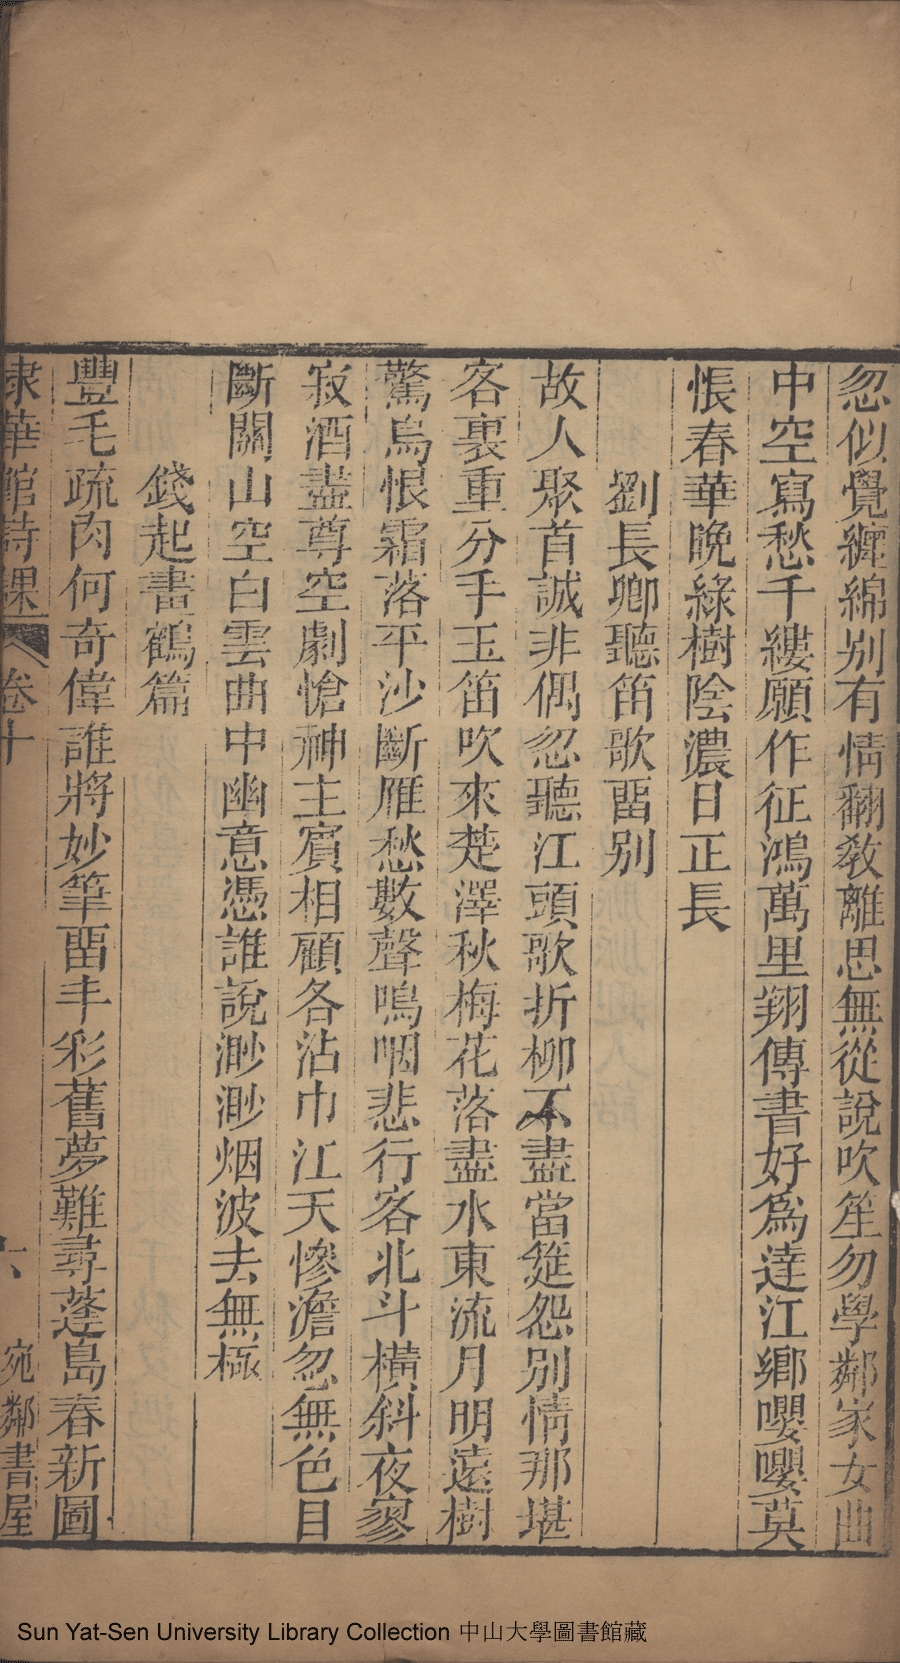 忽似覺纏綿别有情翻敎離思無從說吹笙勿學鄰家女曲
中空寫愁千縷願作征鴻萬里翔傳書好爲達江鄉嚶嚶莫
悵春華晚綠樹陰濃日正長
劉長卿聽笛歌畱别
故人聚首誠非偶忽聽江頭歌折柳不盡當筵怨别情那堪
客裏重分手玉笛吹來楚澤秋梅花落盡水東流月明遠樹
驚烏恨霜落平沙斷雁愁數聲嗚咽悲行客北斗橫斜夜寥
寂酒盡尊空劇愴神主賓相顧各沾巾江天慘澹忽無色目
斷關山空白雲曲中幽意憑誰說渺渺烟波去無極
錢起畫鶴篇
豐毛疏肉何奇偉誰將妙筆畱丰彩舊夢難尋蓬島春新圖
棣華館詩課 卷十 六 宛鄰書屋
Sun Yat-Sen University Library Collection 中山大學圖書館藏